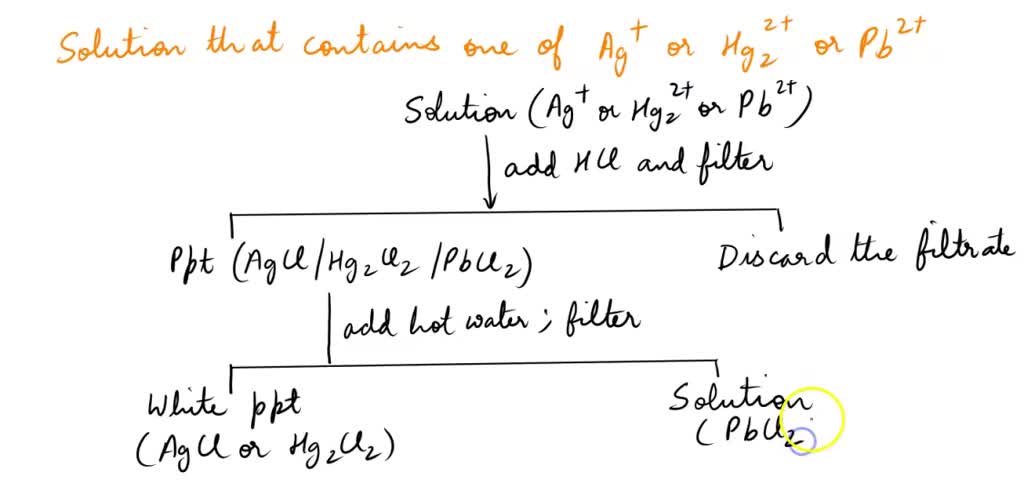 Solution that contains one of Ag⁺ or Hg₂²⁺ or Pb²⁺
Solution (Ag⁺ or Hg₂²⁺ or Pb²⁺)
add HCl and filter
Ppt (AgCl/Hg₂Cl₂/PbCl₂)
Discard the filtrate
add hot water; filter
White ppt
(AgCl or Hg₂Cl₂)
Solution
(PbCl₂